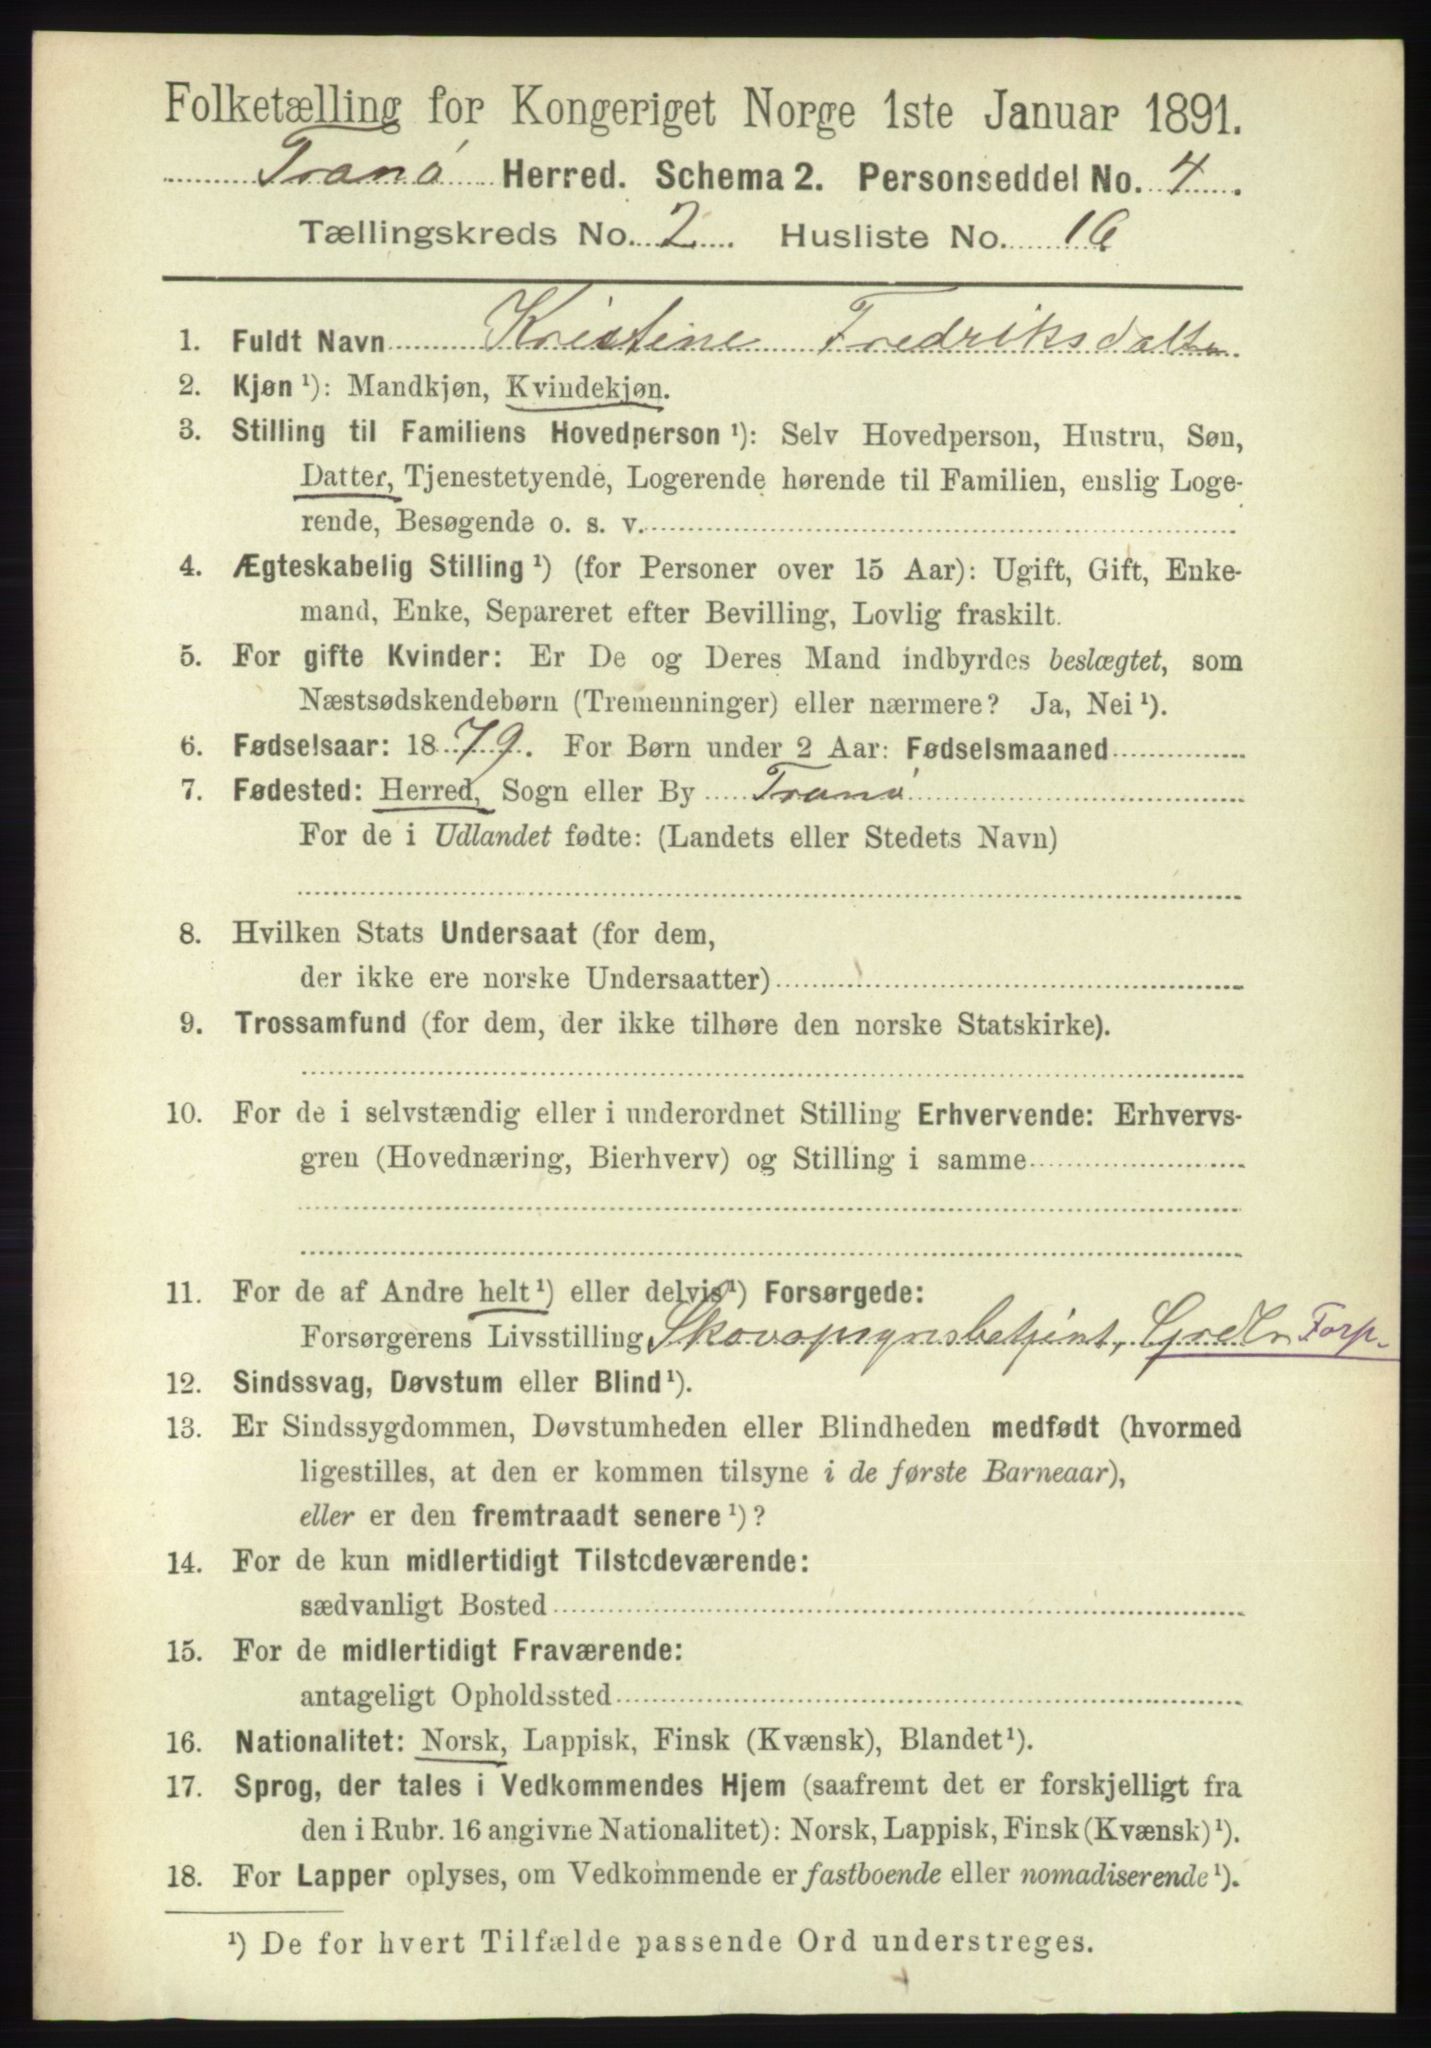 Folketælling for Kongeriget Norge 1ste Januar 1891.
Tranø Herred. Schema 2. Personseddel No. 4.
Tællingskreds No. 2. Husliste No. 16
1. Fuldt Navn Kristine Fredriksdatter
2. Kjøn ¹): Mandkjøn, Kvindekjøn.
3. Stilling til Familiens Hovedperson ¹): Selv Hovedperson, Hustru, Søn,
Datter, Tjenestetyende, Logerende hørende til Familien, enslig Loge-
rende, Besøgende o. s. v.
4. Ægteskabelig Stilling ¹) (for Personer over 15 Aar): Ugift, Gift, Enke-
mand, Enke, Separeret efter Bevilling, Lovlig fraskilt.
5. For gifte Kvinder: Er De og Deres Mand indbyrdes beslægtet, som
Næstsødskendebørn (Tremenninger) eller nærmere? Ja, Nei ¹).
6. Fødselsaar: 1879. For Børn under 2 Aar: Fødselsmaaned
7. Fødested: Herred, Sogn eller By Tranø
For de i Udlandet fødte: (Landets eller Stedets Navn)
8. Hvilken Stats Undersaat (for dem,
der ikke ere norske Undersaatter)
9. Trossamfund (for dem, der ikke tilhøre den norske Statskirke).
10. For de i selvstændig eller i underordnet Stilling Erhvervende: Erhvervs-
gren (Hovednæring, Bierhverv) og Stilling i samme
11. For de af Andre helt ¹) eller delvis ¹) Forsørgede:
Forsørgerens Livsstilling Skovopsynsbetjent, Forp.
12. Sindssvag, Døvstum eller Blind ¹).
13. Er Sindssygdommen, Døvstumheden eller Blindheden medfødt (hvormed
ligestilles, at den er kommen tilsyne i de første Barneaar),
eller er den fremtraadt senere ¹)?
14. For de kun midlertidigt Tilstedeværende:
sædvanligt Bosted
15. For de midlertidigt Fraværende:
antageligt Opholdssted
16. Nationalitet: Norsk, Lappisk, Finsk (Kvænsk), Blandet ¹).
17. Sprog, der tales i Vedkommendes Hjem (saafremt det er forskjelligt fra
den i Rubr. 16 angivne Nationalitet): Norsk, Lappisk, Finsk (Kvænsk) ¹).
18. For Lapper oplyses, om Vedkommende er fastboende eller nomadiserende ¹).
¹) De for hvert Tilfælde passende Ord understreges.